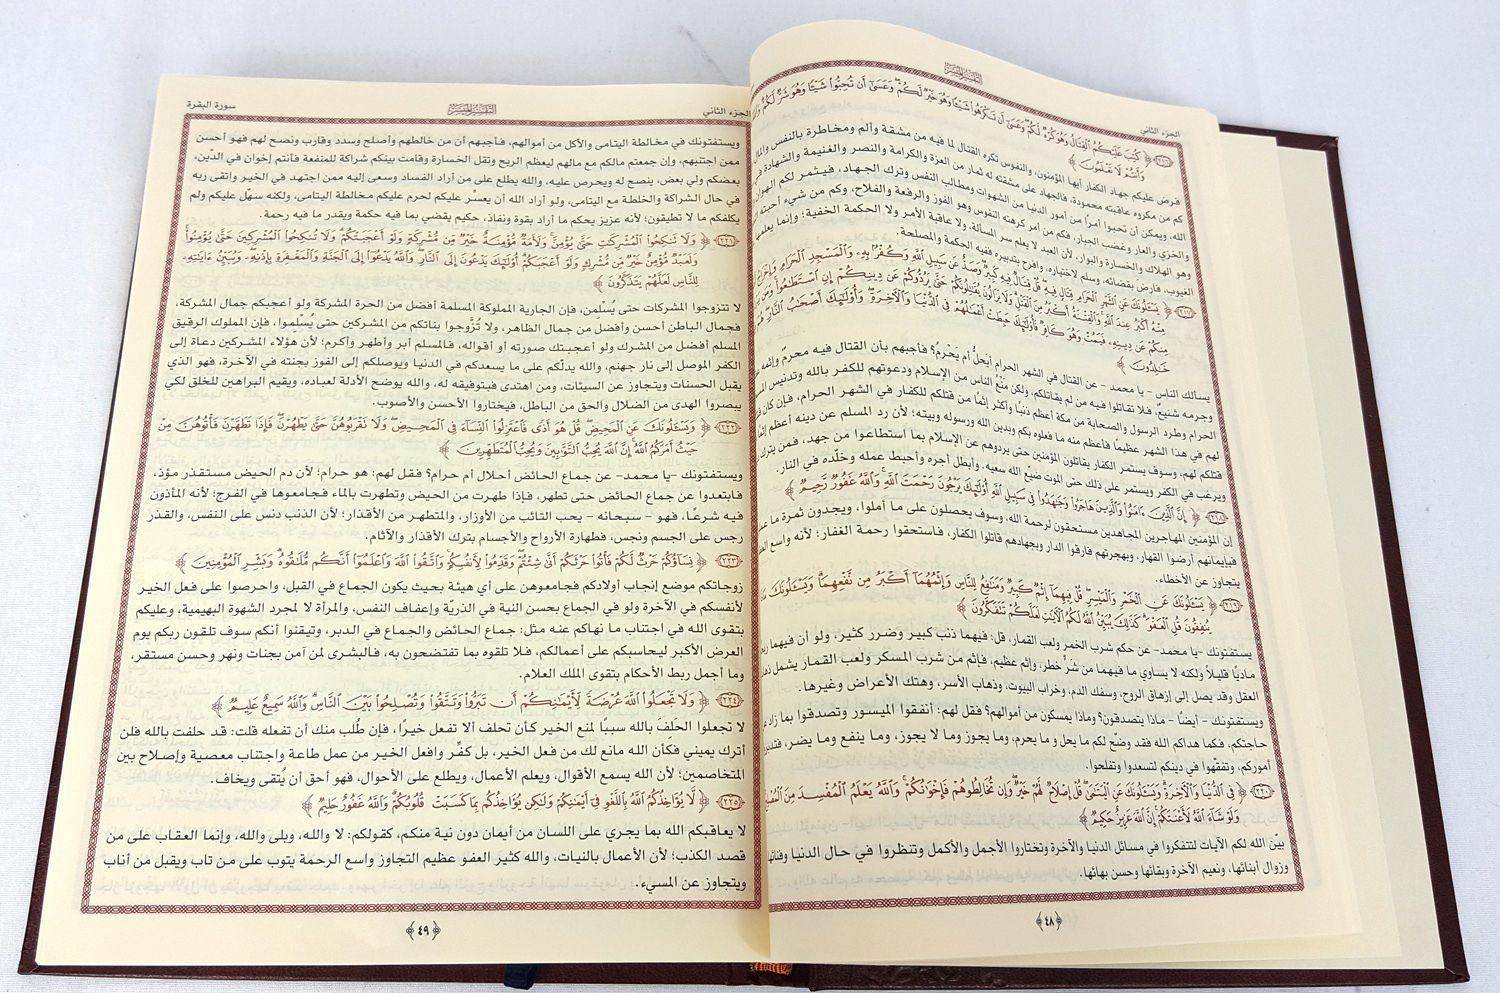 التفسير الميسر
الجزء الثاني
﴿٢١٦﴾ كُتِبَ عَلَيْكُمُ ٱلْقِتَالُ وَهُوَ كُرْهٌ لَّكُمْ وَعَسَىٰٓ أَن تَكْرَهُوا۟ شَيْـًٔا وَهُوَ خَيْرٌ لَّكُمْ وَعَسَىٰٓ أَن تُحِبُّوا۟ شَيْـًٔا وَهُوَ شَرٌّ لَّكُمْ
وَأَنتُمْ لَا تَعْلَمُونَ
فرض عليكم جهاد الكفار أيها المؤمنون، والنفوس تكره القتال لما فيه من مشقة وألم ومخاطرة بالنفس والمال
كم من مكروه عاقبته محمودة، فالجهاد على مشقته له ثمار من العزة والكرامة والنصر والغنيمة والشهادة في
الله، ويمكن أن تحبوا أمرًا من أمور الدنيا من الشهوات ومطالب النفس وترك الجهاد، فيثمر لكم الهوان
والخزي والعار وغضب الجبار، فكم من أمر كرهته النفوس وهو الفوز والرفعة والفلاح، وكم من شيء أحبته
وهو الهلاك والخسارة والبوار، لأن العبد لا يعلم سر المسألة، ولا عاقبة الأمر ولا الحكمة الخفية؛ وإنما يعلمها
الغيوب، فارض بقضائه، وسلم لاختياره، وافرح بتدبيره ففيه الحكمة والمصلحة.
﴿٢١٧﴾ يَسْـَٔلُونَكَ عَنِ ٱلشَّهْرِ ٱلْحَرَامِ قِتَالٍ فِيهِ قُلْ قِتَالٌ فِيهِ كَبِيرٌ وَصَدٌّ عَن سَبِيلِ ٱللَّهِ وَكُفْرٌۢ بِهِۦ وَٱلْمَسْجِدِ ٱلْحَرَامِ وَإِخْرَاجُ
مِنْهُ أَكْبَرُ عِندَ ٱللَّهِ وَٱلْفِتْنَةُ أَكْبَرُ مِنَ ٱلْقَتْلِ وَلَا يَزَالُونَ يُقَـٰتِلُونَكُمْ حَتَّىٰ يَرُدُّوكُمْ عَن دِينِكُمْ إِنِ ٱسْتَطَـٰعُوا۟ وَمَن
مِنكُمْ عَن دِينِهِۦ فَيَمُتْ وَهُوَ كَافِرٌ فَأُو۟لَـٰٓئِكَ حَبِطَتْ أَعْمَـٰلُهُمْ فِى ٱلدُّنْيَا وَٱلْـَٔاخِرَةِ وَأُو۟لَـٰٓئِكَ أَصْحَـٰبُ ٱلنَّارِ
خَـٰلِدُونَ
يسألك الناس - يا محمد - عن القتال في الشهر الحرام أيَحلُّ أم يَحْرم؟ فأجبهم بأن القتال فيه محرمٌ وإثمه
وجرمه شنيعٌ، فلا تقاتلوا فيه من لم يقاتلكم، ولكن منْعُ الناس من الإسلام ودعوتهم للكفر بالله وتدنيس
الحرام وطرد الرسول والصحابة من مكة أعظم ذنبًا وأكثر إثمًا من قتلكم للكفار في الشهر الحرام، فإن كان
لهم في هذا الشهر عظيمًا فأعظم منه ما فعلوه بكم وبدين الله ورسوله وبيته؛ لأن رد المسلم عن دينه أعظم
قتلكم لهم، وسوف يستمر الكفار يقاتلون المؤمنين حتى يردوهم عن الإسلام بما استطاعوا من جهد، فمن يترك
ويرغب في الكفر ويستمر على ذلك حتى الموت ضيّع الله سعيه، وأبطل أجره وأحبط عمله وخلّده في النار.
﴿٢١٨﴾ إِنَّ ٱلَّذِينَ ءَامَنُوا۟ وَٱلَّذِينَ هَاجَرُوا۟ وَجَـٰهَدُوا۟ فِى سَبِيلِ ٱللَّهِ أُو۟لَـٰٓئِكَ يَرْجُونَ رَحْمَتَ ٱللَّهِ وَٱللَّهُ غَفُورٌ رَّحِيمٌ
إن المؤمنين المهاجرين المجاهدين مستحقون لرحمة الله، وسوف يحصلون على ما أملوا، ويجدون ثمرة ما
فبإيمانهم أرضوا القهار، وبهجرتهم فارقوا الدار وبجهادهم قاتلوا الكفار، فاستحقوا رحمة الغفار؛ لأنه واسع
يتجاوز عن الأخطاء.
﴿٢١٩﴾ يَسْـَٔلُونَكَ عَنِ ٱلْخَمْرِ وَٱلْمَيْسِرِ قُلْ فِيهِمَآ إِثْمٌ كَبِيرٌ وَمَنَـٰفِعُ لِلنَّاسِ وَإِثْمُهُمَآ أَكْبَرُ مِن نَّفْعِهِمَا وَيَسْـَٔلُونَكَ
يُنفِقُونَ قُلِ ٱلْعَفْوَ كَذَٰلِكَ يُبَيِّنُ ٱللَّهُ لَكُمُ ٱلْـَٔايَـٰتِ لَعَلَّكُمْ تَتَفَكَّرُونَ
يستفتونك -يا محمد- عن حكم شرب الخمر ولعب القمار، قل: فيهما ذنب كبير وضرر كثير، ولو أن فيهما
ماديًا قليلاً ولكنه لا يساوي ما فيهما من شرٍّ خطر، وإثم عظيم، فإثم من شرب المسكر ولعب القمار يشمل
العقل وقد يصل إلى إزهاق الروح، وسفك الدم، وخراب البيوت، وذهاب الأسر، وهتك الأعراض وغيرها.
ويستفتونك - أيضًا - ماذا يتصدقون؟ وماذا يمسكون من أموالهم؟ فقل لهم: أنفقوا الميسور وتصدقوا بما زاد
حاجتكم، فكما هداكم الله فقد وضّح لكم ما يحل و ما يحرم، وما يجوز وما لا يجوز، وما ينفع وما يضر،
أموركم، وتفقّهوا في دينكم لتسعدوا وتفلحوا.
﴿٢٢٠﴾ فِى ٱلدُّنْيَا وَٱلْـَٔاخِرَةِ وَيَسْـَٔلُونَكَ عَنِ ٱلْيَتَـٰمَىٰ قُلْ إِصْلَاحٌ لَّهُمْ خَيْرٌ وَإِن تُخَالِطُوهُمْ فَإِخْوَٰنُكُمْ وَٱللَّهُ يَعْلَمُ ٱلْمُفْسِدَ مِنَ
وَلَوْ شَآءَ ٱللَّهُ لَأَعْنَتَكُمْ إِنَّ ٱللَّهَ عَزِيزٌ حَكِيمٌ
بيّن الله لكم الآيات لتتفكروا في مسائل الدنيا والآخرة وتختاروا الأجمل والأكمل وتنظروا في حال الدنيا وفنائها
وزوال أبنائها، ونعيم الآخرة وبقائها وحسن بهائها.
٤٨
الجزء الثاني
التفسير الميسر
سورة البقرة
ويستفتونك في مخالطة اليتامى والأكل من أموالهم، فأجبهم أن من خالطهم وأصلح وسدد وقارب ونصح لهم فهو أحسن
ممن اجتنبهم، وإن جمعتم مالكم مع مالهم ليعظم الربح وتقل الخسارة وقامت بينكم شراكة للمنفعة فأنتم إخوان في الدّين،
بعضكم ولي بعض، ينصح له ويحرص عليه، والله يطلع على من أراد الفساد وسعى إليه ممن اجتهد في الخير واتقى ربه
في حال الشراكة والخلطة مع اليتامى، ولو أراد الله أن يعسْر عليكم لحرم عليكم مخالطة اليتامى، ولكنه سهّل عليكم ولم
يكلفكم ما لا تطيقون؛ لأنه عزيز يحكم ما أراد بقوة ونفاذ، حكيم يقضي بما فيه حكمة ويقدر ما فيه رحمة.
﴿٢٢١﴾ وَلَا تَنكِحُوا۟ ٱلْمُشْرِكَـٰتِ حَتَّىٰ يُؤْمِنَّ وَلَأَمَةٌ مُّؤْمِنَةٌ خَيْرٌ مِّن مُّشْرِكَةٍ وَلَوْ أَعْجَبَتْكُمْ وَلَا تُنكِحُوا۟ ٱلْمُشْرِكِينَ حَتَّىٰ يُؤْمِنُوا۟
وَلَعَبْدٌ مُّؤْمِنٌ خَيْرٌ مِّن مُّشْرِكٍ وَلَوْ أَعْجَبَكُمْ أُو۟لَـٰٓئِكَ يَدْعُونَ إِلَى ٱلنَّارِ وَٱللَّهُ يَدْعُوٓا۟ إِلَى ٱلْجَنَّةِ وَٱلْمَغْفِرَةِ بِإِذْنِهِۦ وَيُبَيِّنُ ءَايَـٰتِهِۦ
لِلنَّاسِ لَعَلَّهُمْ يَتَذَكَّرُونَ
لا تتزوجوا المشركات حتى يُسلمن، فإن الجارية المملوكة المسلمة أفضل من الحرة المشركة ولو أعجبكم جمال المشركة،
فجمال الباطن أحسن وأفضل من جمال الظاهر، ولا تُزَوِّجوا بناتكم من المشركين حتى يُسلموا، فإن المملوك الرقيق
المسلم أفضل من المشرك ولو أعجبتك صورته أو أقواله، فالمسلم أبر وأطهر وأكرم؛ لأن هؤلاء المشركين دعاة إلى
الكفر الموصل إلى نار جهنم، والله يدلّكم على ما يسعدكم في الدنيا ويوصلكم إلى الفوز بجنته في الآخرة، فهو الذي
يقبل الحسنات ويتجاوز عن السيئات، ومن اهتدى فبتوفيقه له، والله يوضح الأدلة لعباده، ويقيم البراهين للخلق لكي
يبصروا الهدى من الضلال والحق من الباطل، فيختاروا الأحسن والأصوب.
﴿٢٢٢﴾ وَيَسْـَٔلُونَكَ عَنِ ٱلْمَحِيضِ قُلْ هُوَ أَذًى فَٱعْتَزِلُوا۟ ٱلنِّسَآءَ فِى ٱلْمَحِيضِ وَلَا تَقْرَبُوهُنَّ حَتَّىٰ يَطْهُرْنَ فَإِذَا تَطَهَّرْنَ فَأْتُوهُنَّ مِنْ
حَيْثُ أَمَرَكُمُ ٱللَّهُ إِنَّ ٱللَّهَ يُحِبُّ ٱلتَّوَّٰبِينَ وَيُحِبُّ ٱلْمُتَطَهِّرِينَ
ويستفتونك -يا محمد- عن جماع الحائض أحلال أم حرام؟ فقل لهم: هو حرام؛ لأن دم الحيض مستقذر مؤذ،
فابتعدوا عن جماع الحائض حتى تطهر، فإذا طهرت من الحيض وتطهرت بالماء فجامعوها في الفرج؛ لأنه المأذون
فيه شرعًا، فهو - سبحانه - يحب التائب من الأوزار، والمتطهر من الأقذار؛ لأن الذنب دنس على النفس، والقذر
رجس على الجسم ونجس، فطهارة الأرواح والأجسام بترك الأقذار والآثام.
﴿٢٢٣﴾ نِسَآؤُكُمْ حَرْثٌ لَّكُمْ فَأْتُوا۟ حَرْثَكُمْ أَنَّىٰ شِئْتُمْ وَقَدِّمُوا۟ لِأَنفُسِكُمْ وَٱتَّقُوا۟ ٱللَّهَ وَٱعْلَمُوٓا۟ أَنَّكُم مُّلَـٰقُوهُ وَبَشِّرِ ٱلْمُؤْمِنِينَ
زوجاتكم موضع إنجاب أولادكم فجامعوهن على أي هيئة بحيث يكون الجماع في القبل، واحرصوا على فعل الخير
لأنفسكم في الآخرة ولو في الجماع بحسن النية في الذريّة وإعفاف النفس، والمرأة لا لمجرد الشهوة البهيمية، وعليكم
بتقوى الله في اجتناب ما نهاكم عنه مثل: جماع الحائض والجماع في الدبر، وتيقنوا أنكم سوف تلقون ربكم يوم
العرض الأكبر ليحاسبكم على أعمالكم، فلا تلقوه بما تفتضحون به، فالبشرى لمن آمن بجنات ونهر وحسن مستقر،
وما أجمل ربط الأحكام بتقوى الملك العلام.
﴿٢٢٤﴾ وَلَا تَجْعَلُوا۟ ٱللَّهَ عُرْضَةً لِّأَيْمَـٰنِكُمْ أَن تَبَرُّوا۟ وَتَتَّقُوا۟ وَتُصْلِحُوا۟ بَيْنَ ٱلنَّاسِ وَٱللَّهُ سَمِيعٌ عَلِيمٌ
لا تجعلوا الحَلفَ بالله سببًا لمنع الخير كأن تحلف ألا تفعل خيرًا، فإن طُلب منك أن تفعله قلت: قد حلفت بالله فلن
أترك يميني فكأن الله مانع لك من فعل الخير، بل كفِّر وافعل الخير من عمل طاعة واجتناب معصية وإصلاح بين
المتخاصمين؛ لأن الله يسمع الأقوال، ويعلم الأعمال، ويطلع على الأحوال، فهو أحق أن يُتقى ويخاف.
﴿٢٢٥﴾ لَّا يُؤَاخِذُكُمُ ٱللَّهُ بِٱللَّغْوِ فِىٓ أَيْمَـٰنِكُمْ وَلَـٰكِن يُؤَاخِذُكُم بِمَا كَسَبَتْ قُلُوبُكُمْ وَٱللَّهُ غَفُورٌ حَلِيمٌ
لا يعاقبكم الله بما يجري على اللسان من أيمان دون نية منكم، كقولكم: لا والله، وبلى والله، وإنما العقاب على من
قصد الكذب؛ لأن الأعمال بالنيات، والله كثير العفو عظيم التجاوز واسع الرحمة يتوب على من تاب ويقبل من أناب
ويتجاوز عن المسيء.
٤٩